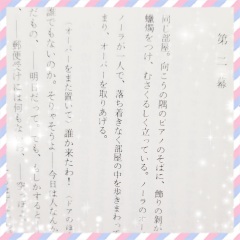 第二幕
同じ部屋。向こうの隅のピアノのそばに、飾りの剝
蠟燭をつけ、むさくるしく立っている。ノーラの
ノーラが一人で、落ち着きなく部屋の中を歩きまわっ
まり、オーバーを取りあげる。
（オーバーをまた置いて）誰か来たわ！（ドアの
誰でもないのか。そりゃそうよ――今日は人なん
だもの。――明日だって も、もしかすると
――郵便受けには何も